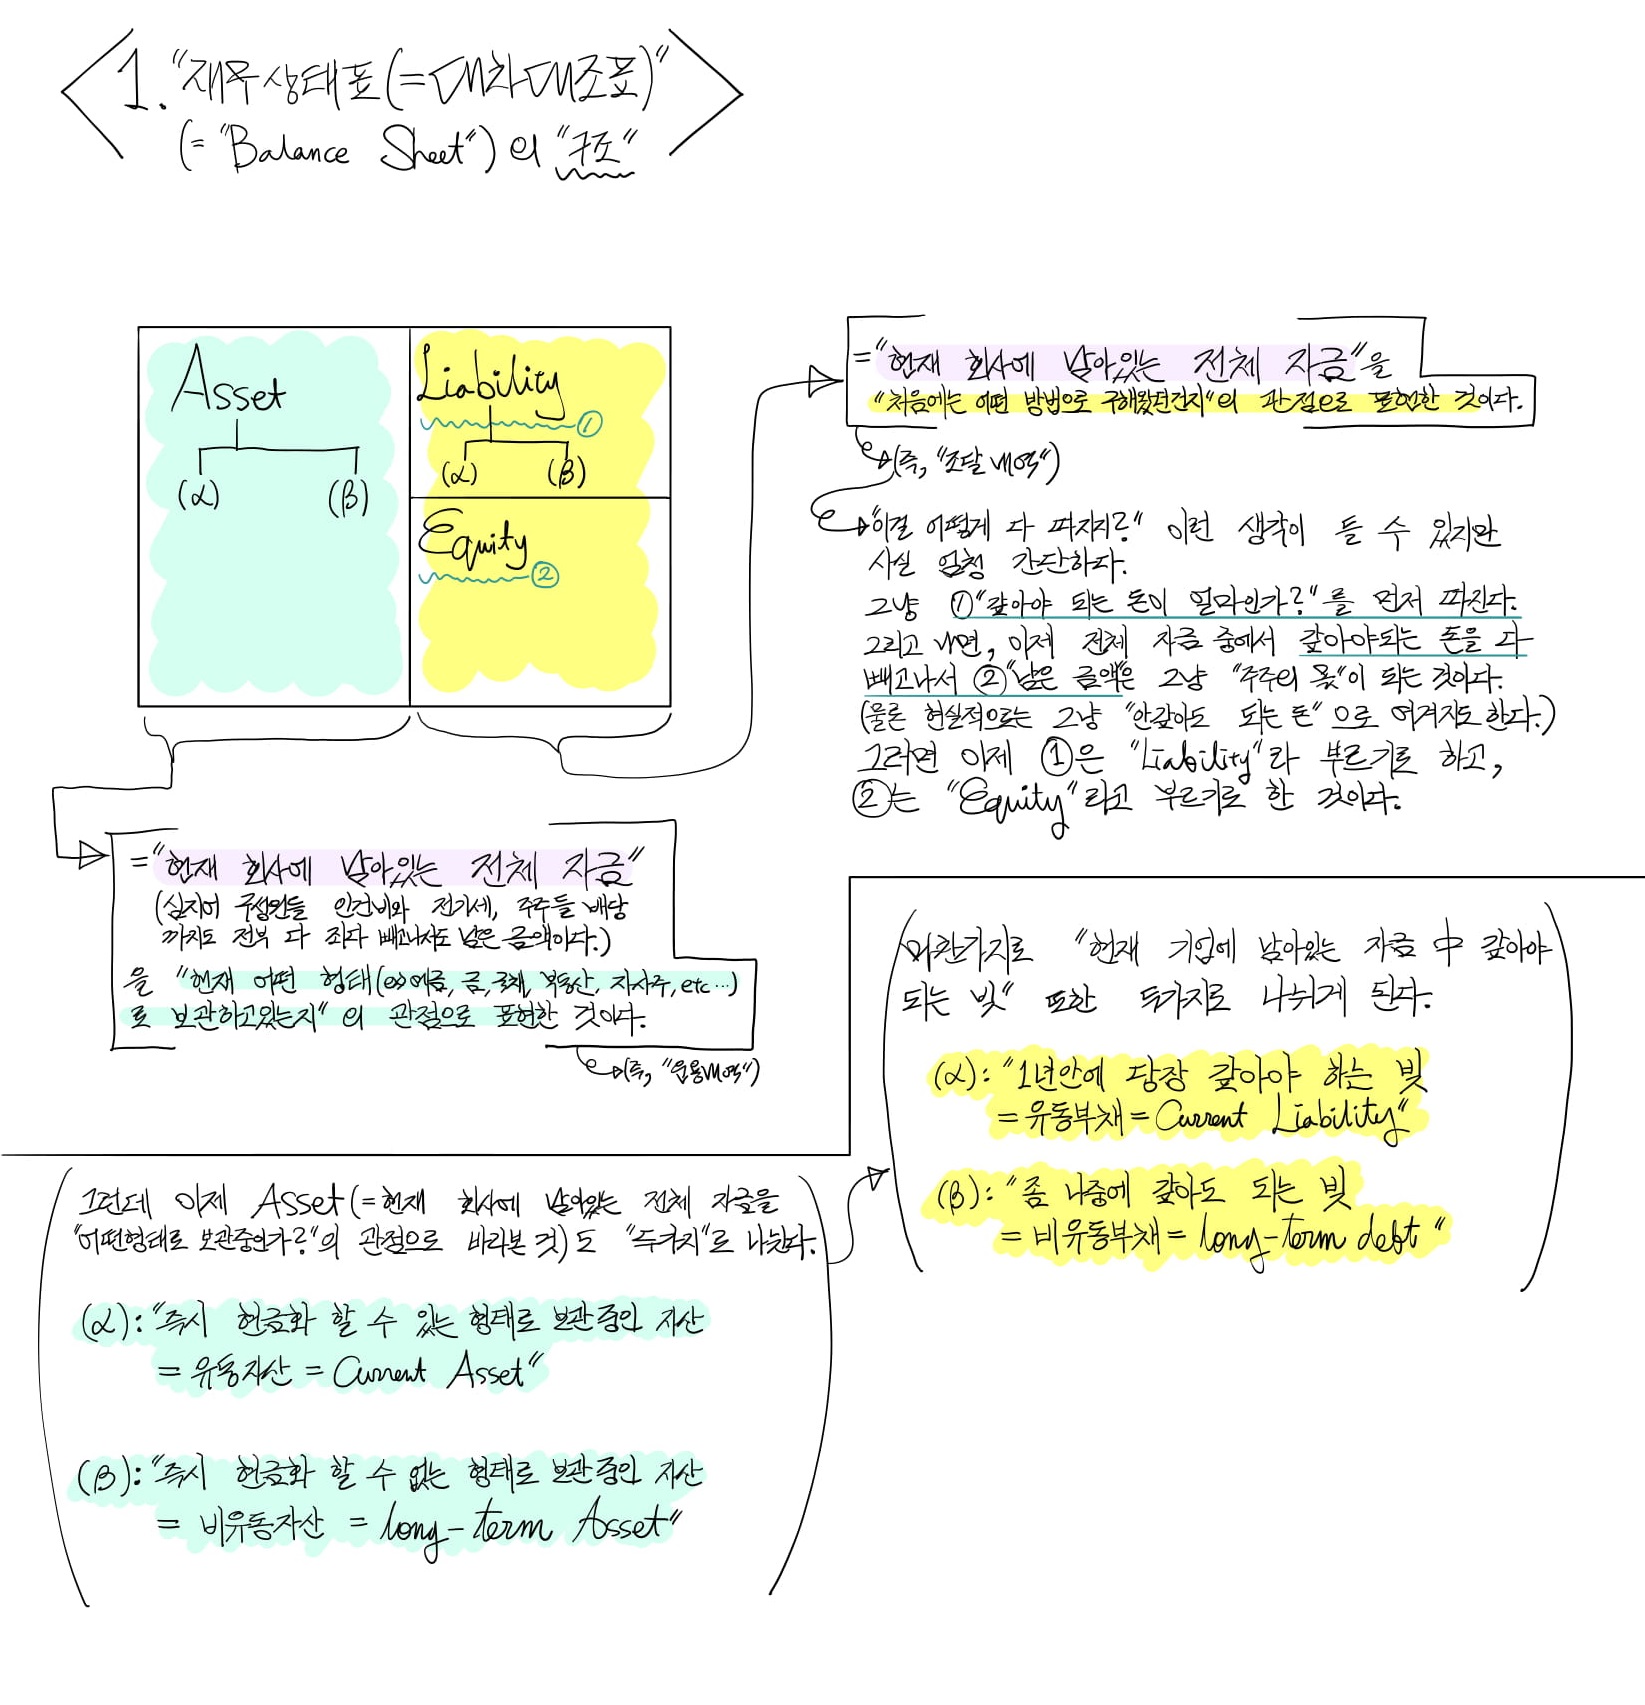 1. "재무상태표(=대차대조표)"
(= "Balance Sheet") 의 "구조"
Asset
(α)
(β)
Liability
①
(α)
(β)
Equity
②
="현재 회사에 남아있는 전체 자금"을
"처음에는 어떤 방법으로 구해왔던건지"의 관점으로 표현한 것이다.
(즉, "조달내역")
"이걸 어떻게 다 따지지?" 이런 생각이 들 수 있지만
사실 엄청 간단하다.
그냥 ①"갚아야 되는 돈이 얼마인가?"를 먼저 따진다.
그리고 나면, 이제 전체 자금 중에서 갚아야되는 돈을 다
빼고나서 ②"남은 금액"은 그냥 "주주의 몫"이 되는 것이다.
(물론 현실적으로는 그냥 "안갚아도 되는 돈"으로 여겨지도한다.)
그러면 이제 ①은 "Liability"라 부르기로 하고,
②는 "Equity"라고 부르기로 한 것이다.
="현재 회사에 남아있는 전체 자금"
(심지어 구성원들 인건비와 전기세, 주주들 배당
까지도 전부 다 죄다 빼고나서도 남은 금액이다.)
을 "현재 어떤 형태(ex)예금, 금, 국채, 부동산, 자사주, etc...)
로 보관하고있는지"의 관점으로 표현한 것이다.
(즉, "운용내역")
그런데 이제 Asset(=현재 회사에 남아있는 전체 자금을
"어떤형태로 보관중인가?"의 관점으로 바라본 것)도 "두가지"로 나뉜다.
(α): "즉시 현금화 할 수 있는 형태로 보관중인 자산
= 유동자산 = Current Asset"
(β): "즉시 현금화 할 수 없는 형태로 보관중인 자산
= 비유동자산 = long-term Asset"
마찬가지로 "현재 기업에 남아있는 자금 中 갚아야
되는 빚" 또한 두가지로 나뉘게 된다.
(α): "1년안에 당장 갚아야 하는 빚
= 유동부채 = Current Liability"
(β): "좀 나중에 갚아도 되는 빚
= 비유동부채 = long-term debt"